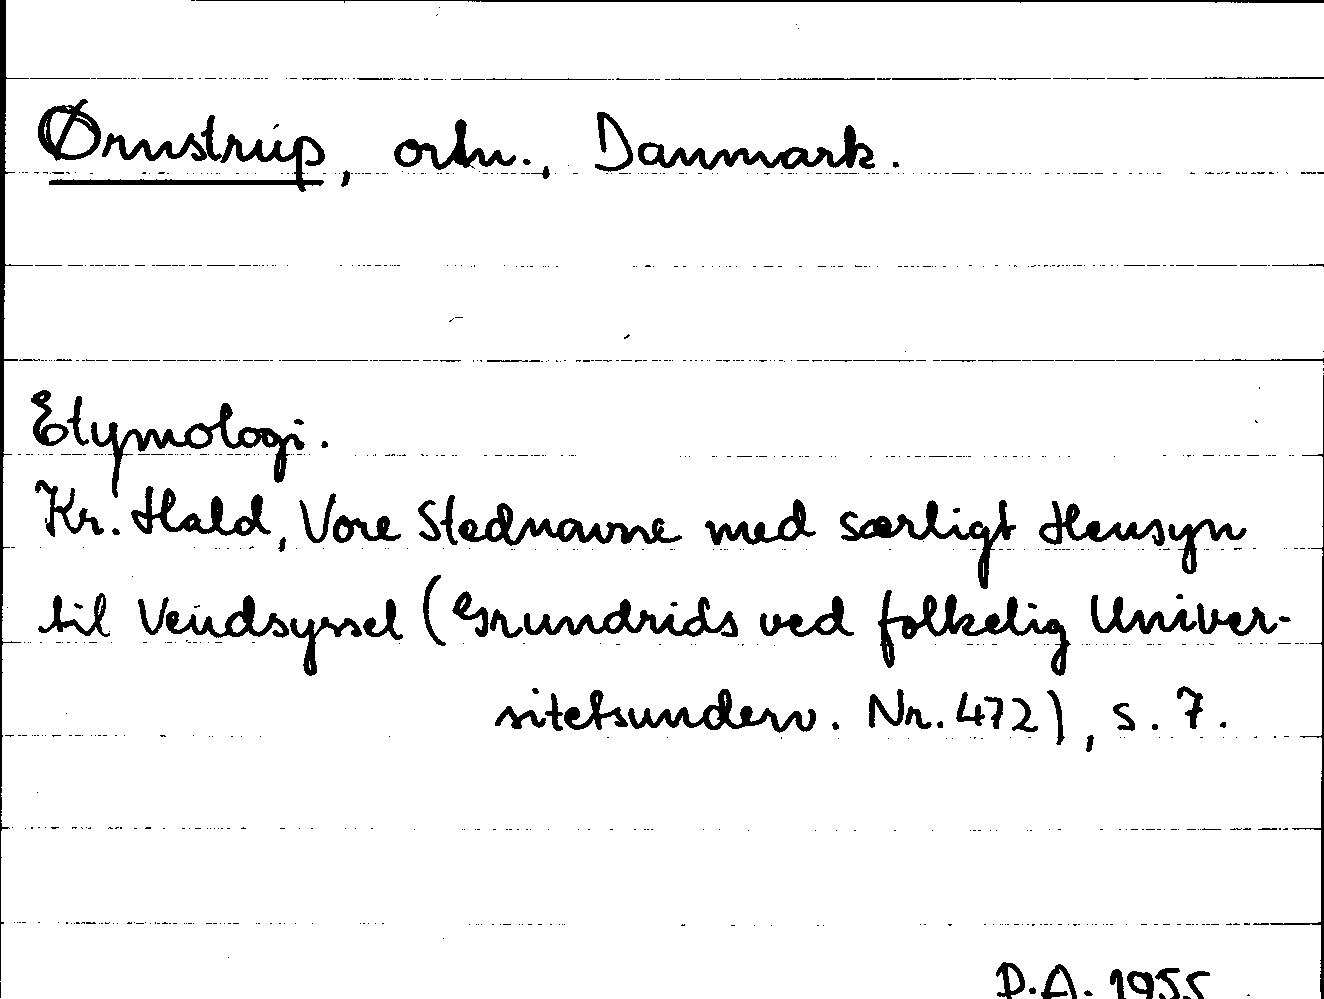 Ørnstrup, ortn., Danmark.
Etymologi.
Kr. Hald, Vore Stednavne med særligt Hensyn
til Vendsyssel (Grundrids ved folkelig Univer-
sitetsunderv. Nr. 472), s. 7.
D.A. 1955